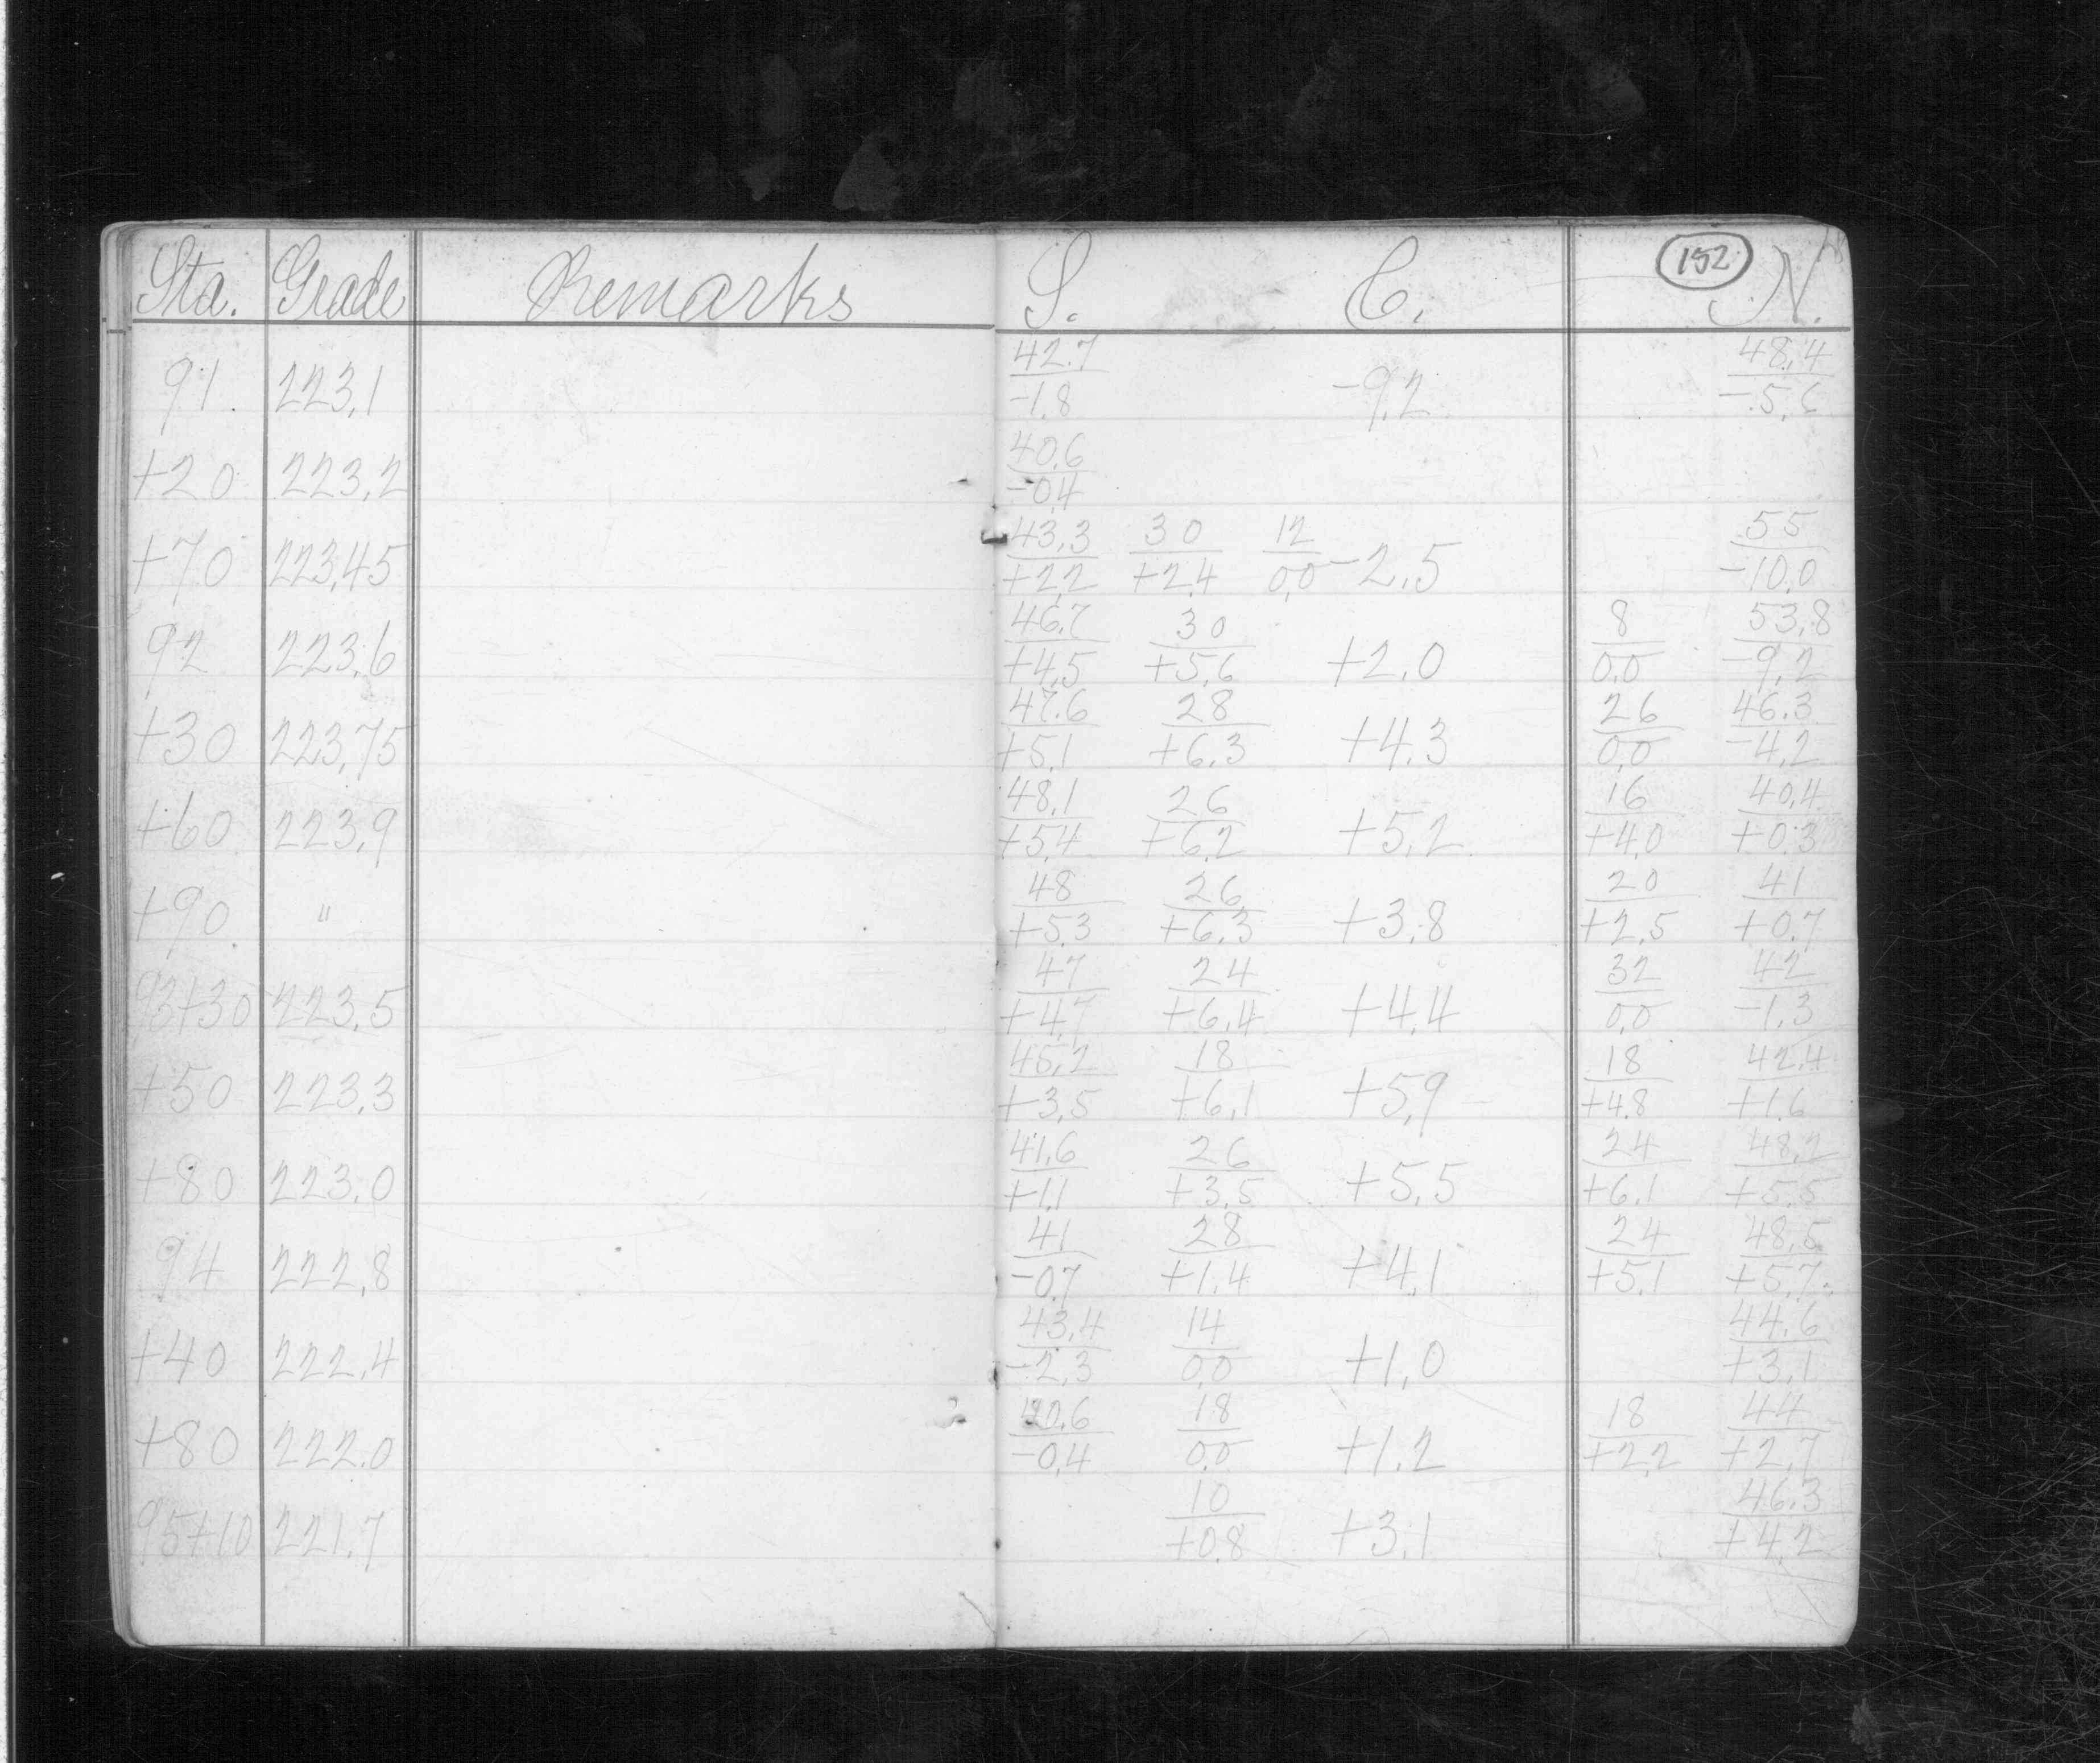 Sta. Grade Remarks S. C. 152 N.
42.7 48.4
91. 223.1 -1.8 -9.2 -5.6
40.6
+20 223.2 -0.4
43.3 30 12 55
+70 223.45 +2.2 +2.4 0.0 -2.5 -10.0
46.7 30 8 53.8
92 223.6 +4.5 +5.6 +2.0 0.0 -9.2
47.6 28 26 46.3
+30 223.75 +5.1 +6.3 +4.3 0.0 -4.2
48.1 26 16 40.4
+60 223.9 +5.4 +6.2 +5.2 +4.0 +0.3
48 26 20 41
+90 " +5.3 +6.3 +3.8 +2.5 +0.7
47 24 32 42
93+30 223.5 +4.7 +6.4 +4.4 0.0 -1.3
45.2 18 18 42.4
+50 223.3 +3.5 +6.1 +5.9 +4.8 +1.6
41.6 26 24 48.2
+80 223.0 +1.1 +3.5 +5.5 +6.1 +5.5
41 28 24 48.5
94 222.8 -0.7 +1.4 +4.1 +5.1 +5.7
43.4 14 44.6
+40 222.4 -2.3 0.0 +1.0 +3.1
40.6 18 18 44
+80 222.0 -0.4 0.0 +1.2 +2.2 +2.7
10 46.3
95+10 221.7 +0.8 +3.1 +4.2